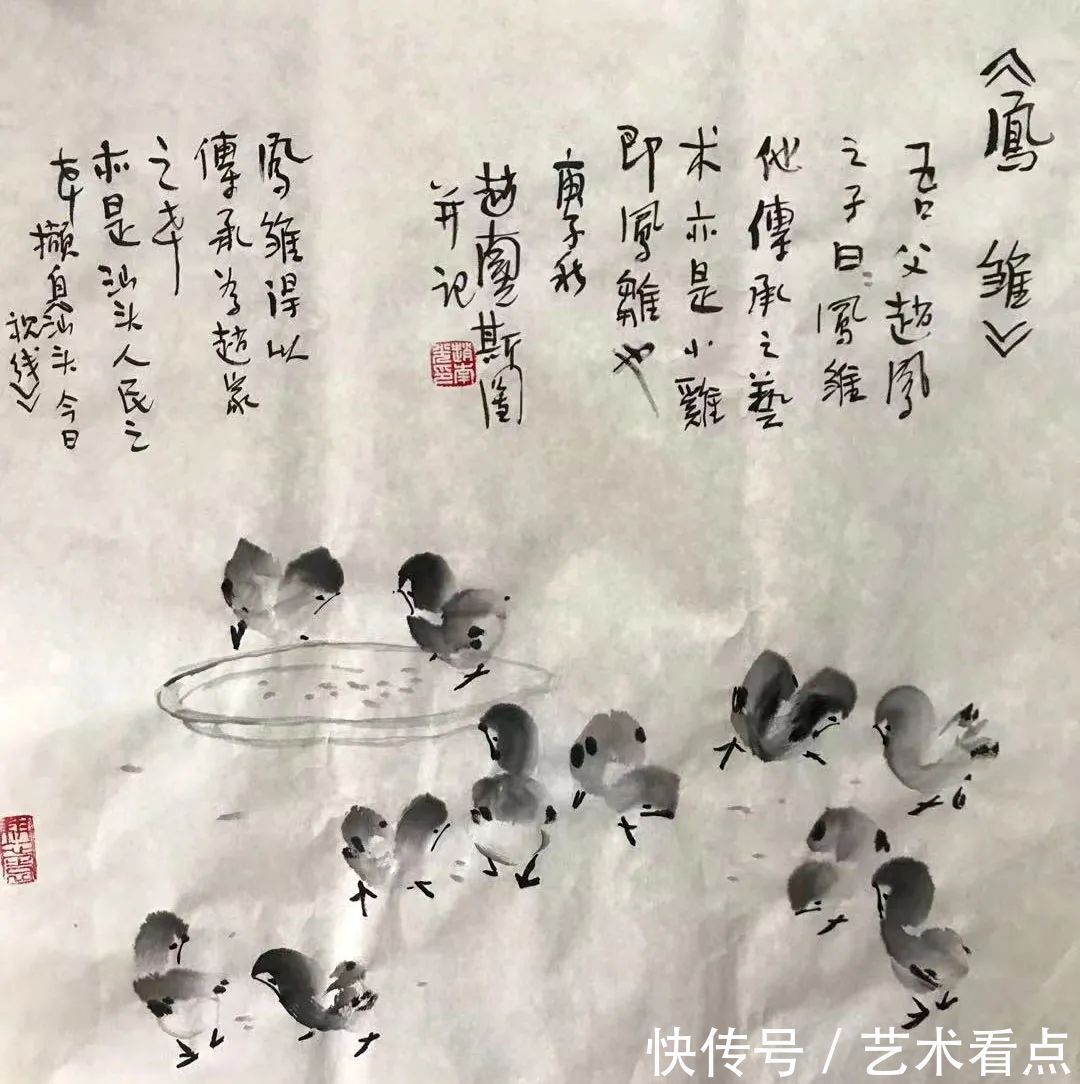 《鳳雛》
吾父趙鳳
之子曰：鳳雛
他傳承之藝
术亦是小雞
即鳳雛也
庚子秋
趙南斯圖
并记
鳳雛得以
傳承为趙家
之幸
亦是汕头人民之
幸
撷息汕头今日
视线》
快传号 / 艺术看点